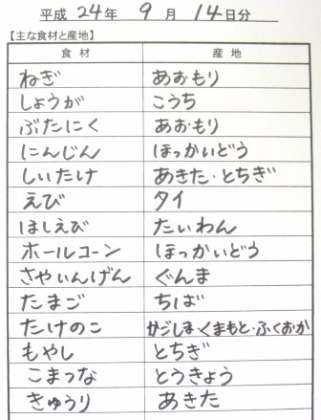 平成 24年 9月 14日分
【主な食材と産地】
食材 産地
ねぎ あおもり
しょうが こうち
ぶたにく あおもり
にんじん ほっかいどう
しいたけ あきた・とちぎ
えび タイ
ほしえび たいわん
ホールコーン ほっかいどう
さやいんげん ぐんま
たまご ちば
たけのこ かごしま・くまもと・ふくおか
もやし とちぎ
こまつな とうきょう
きゅうり あきた